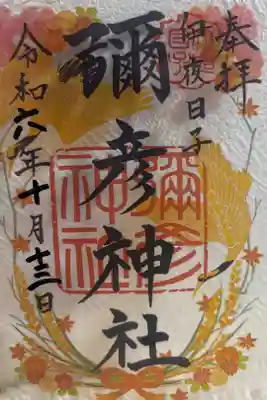 奉拝
伊夜日子
彌彦神社
令和六年十月十三日
彌彦
神社